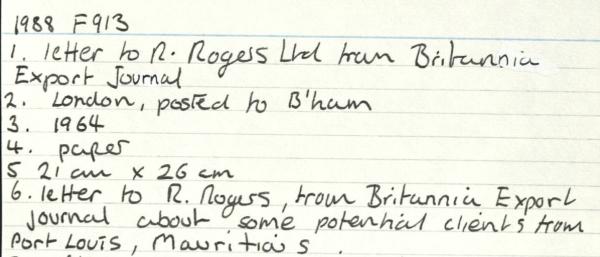 1988 F913
1. letter to R. Rogers Ltd from Britannia
Export Journal
2. London, posted to B'ham
3. 1964
4. paper
5 21 cm x 26 cm
6. letter to R. Rogers, from Britannia Export
Journal about some potential clients from
Port Louis, Mauritius.